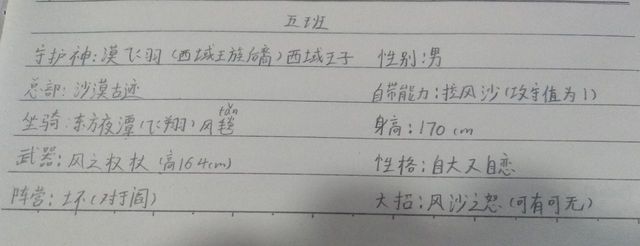 五班
守护神：漠飞羽（西域王族后裔）西域王子 性别：男
总部：沙漠古迹 自带能力：控风沙（攻守值为1）
tǎn
坐骑：东方夜潭（飞翔）风毯 身高：170cm
武器：风之权杖（高164cm） 性格：自大又自恋
阵营：坏（对于阎） 大招：风沙之怒（可有可无）